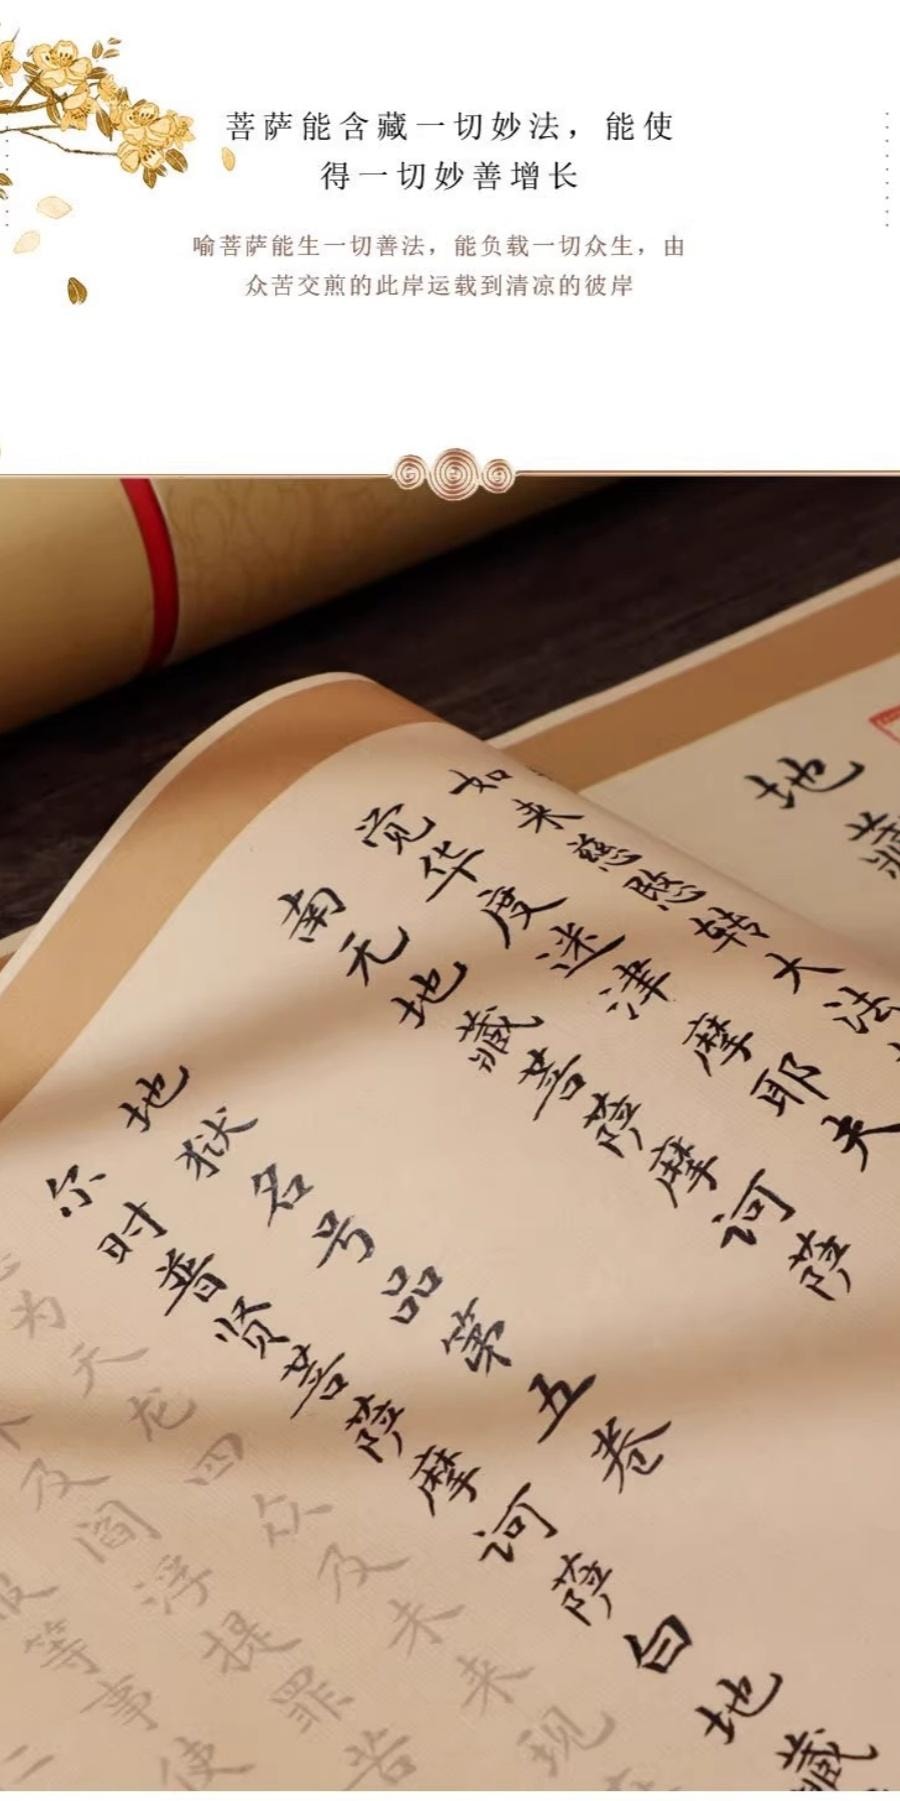 菩萨能含藏一切妙法，能使
得一切妙善增长
喻菩萨能生一切善法，能负载一切众生，由
众苦交煎的此岸运载到清凉的彼岸
地藏
如来慈愍转大法
觉华度迷津摩耶夫
南无地藏菩萨摩诃萨
地狱名号品第五卷
尔时普贤菩萨摩诃萨白地藏
为天龙四众及未来现
及阎浮提罪苦
等事使